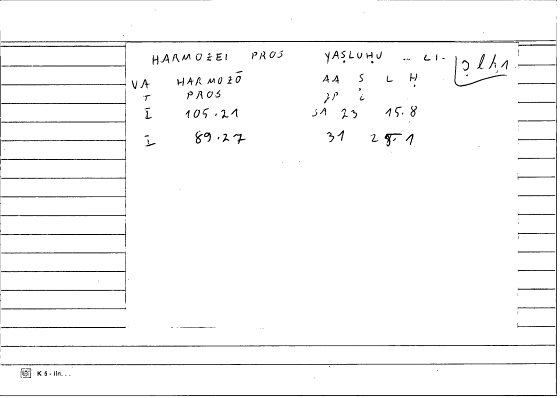 HARMOZEI PROS YAṢLUḤU … LI-
ṣ l ḥ 1
VA HARMOZŌ AA S L Ḥ
T PROS
I 105.21 31 23 15.8
I 89.27 31 28.1
K 5 - lln. . .